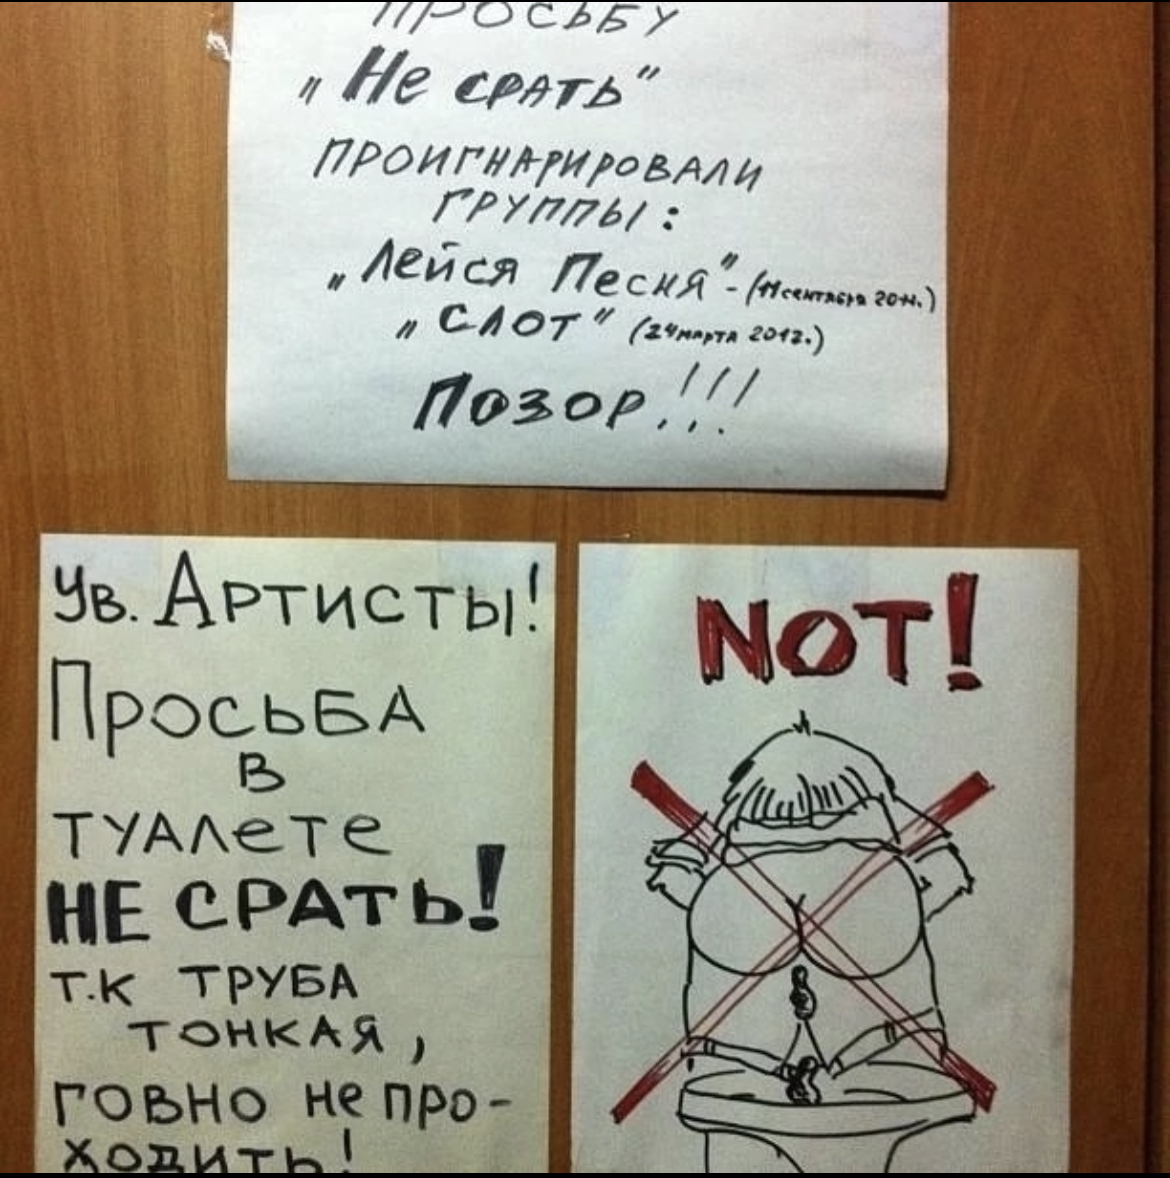 ПРОСЬБУ
„Не срать"
ПРОИГНАРИРОВАЛИ
ГРУППЫ:
„Лейся Песня"-(11 сентября 2011.)
„СЛОТ" (24 марта 2012.)
Позор!!!
Ув. Артисты!
Просьба
в
туалете
НЕ СРАТЬ!
т.к труба
тонкая,
говно не про-
ходить!
NOT!